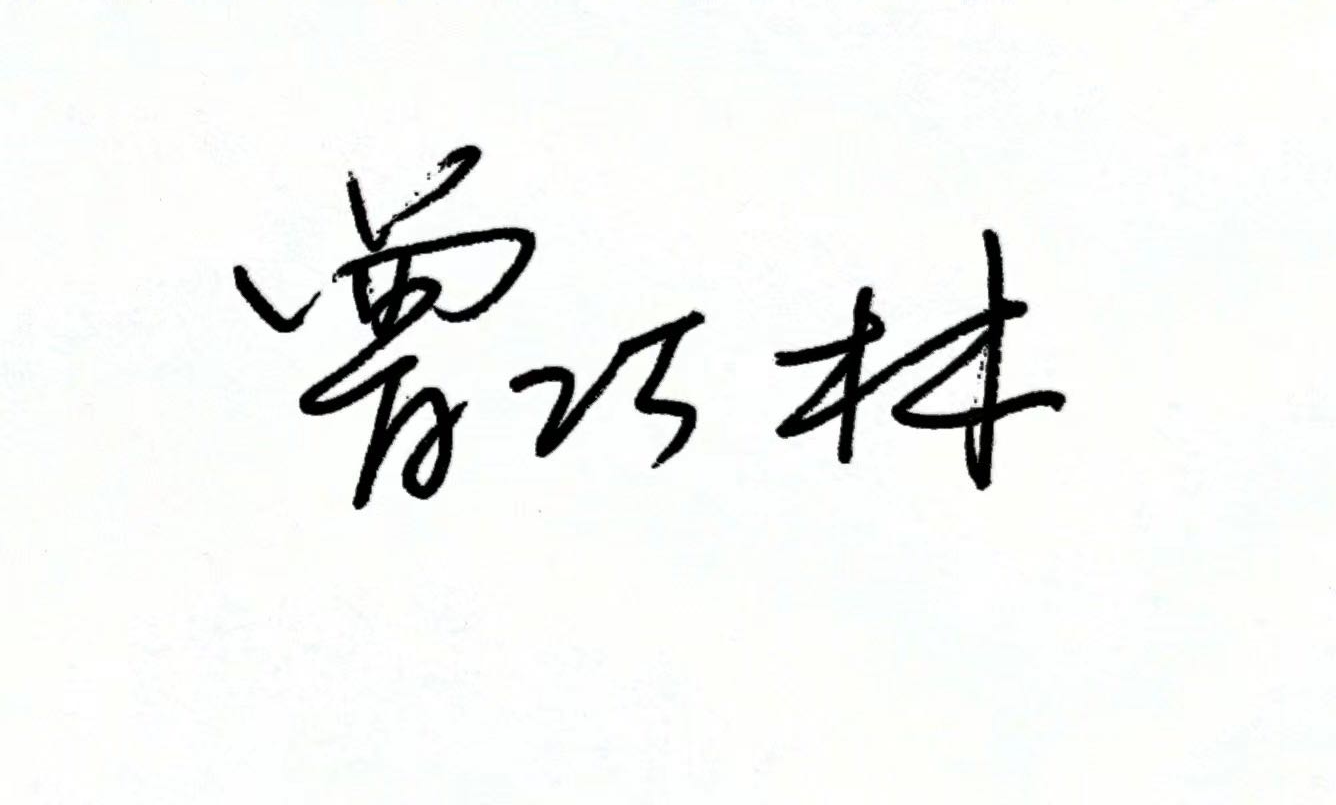 曾巧林